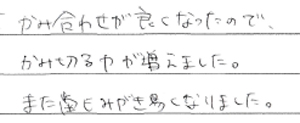 かみ合わせが良くなったので、
かみ切る力が増えました。
また歯もみがき易くなりました。